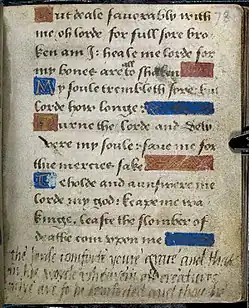 78
But deale favorably with
me, oh lorde for full sore bro
ken am I: heale me lorde for
my bones are all to shaken
My soule trembleth sore: but
lorde how longe:
Turne the lorde and dely
vere my soule: save me for
thie mercies sake
Beholde and aunswere me
lorde my god: keape me wa
kinge, leaste the slomber of
deathe com vppon me
the lorde comforte youre grace and that
in his worde wherein all creatures
are to be